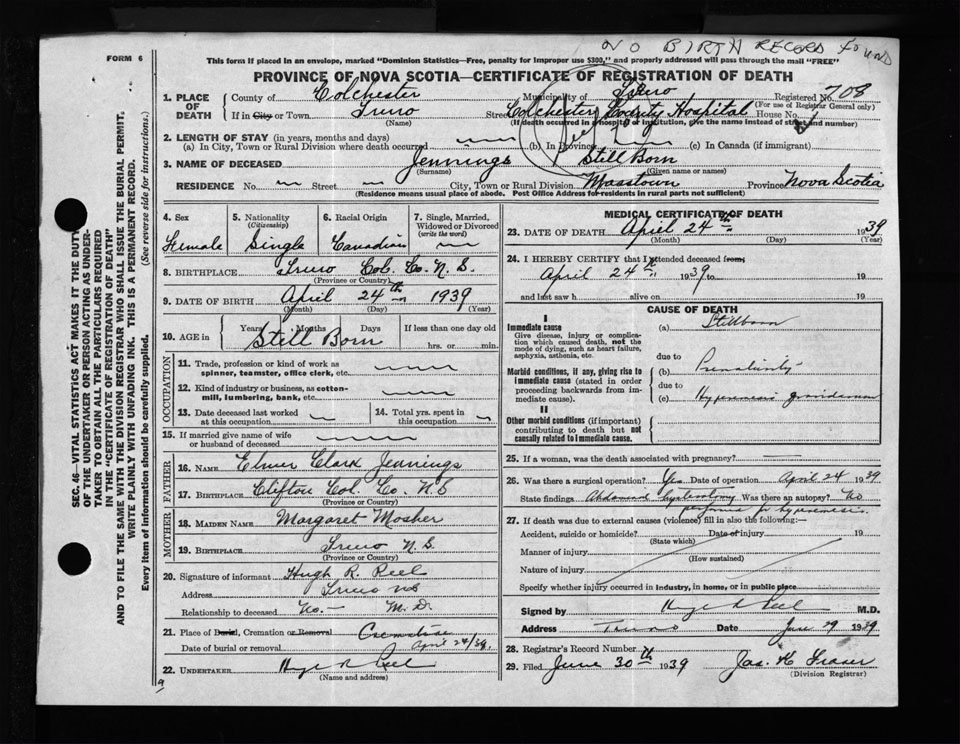 NO BIRTH RECORD FOUND
FORM 6
This form if placed in an envelope, marked "Dominion Statistics—Free, penalty for improper use $300," and properly addressed will pass through the mail "FREE"
PROVINCE OF NOVA SCOTIA—CERTIFICATE OF REGISTRATION OF DEATH
1. PLACE OF DEATH County of Colchester Municipality of Truro Registered No. 708
(For use of Registrar General only)
If in City or Town Truro Street Colchester County Hospital House No.
(Name) (If death occurred in a hospital or institution, give the name instead of street and number)
2. LENGTH OF STAY (in years, months and days)
(a) In City, Town or Rural Division where death occurred (b) In Province (c) In Canada (if immigrant)
3. NAME OF DECEASED Jennings Still Born
(Surname) (Given name or names)
RESIDENCE No. Street City, Town or Rural Division Masstown Province Nova Scotia
(Residence means usual place of abode. Post Office Address for residents in rural parts not sufficient)
4. Sex Female
5. Nationality (Citizenship) Single
6. Racial Origin Canadian
7. Single, Married, Widowed or Divorced (write the word)
8. BIRTHPLACE Truro Col. Co. N.S.
(Province or Country)
9. DATE OF BIRTH April 24th 1939
(Month) (Day) (Year)
10. AGE in Years Months Days If less than one day
Still Born hrs. or min.
OCCUPATION
11. Trade, profession or kind of work as spinner, teamster, office clerk, etc.
12. Kind of industry or business, as cotton-mill, lumbering, bank, etc.
13. Date deceased last worked at this occupation
14. Total yrs. spent in this occupation
15. If married give name of wife or husband of deceased
FATHER
16. NAME Elmer Clark Jennings
17. BIRTHPLACE Clifton Col. Co. N.S
(Province or Country)
MOTHER
18. MAIDEN NAME Margaret Mosher
19. BIRTHPLACE Truro N.S.
(Province or Country)
20. Signature of informant Hugh R. Peel
Address Truro NS
Relationship to deceased No. — M.D.
21. Place of Burial, Cremation or Removal
Date of burial or removal April 24/39.
22. UNDERTAKER Hugh R Peel
(Name and address)
MEDICAL CERTIFICATE OF DEATH
23. DATE OF DEATH April 24th 1939
(Month) (Day) (Year)
24. I HEREBY CERTIFY that I attended deceased from
April 24th 1939 to 19
and last saw h alive on 19
CAUSE OF DEATH
I
Immediate cause
Give disease, injury or complication which caused death, not the mode of dying, such as heart failure, asphyxia, asthenia, etc.
(a) Stillborn
due to
Morbid conditions, if any, giving rise to immediate cause (stated in order proceeding backwards from immediate cause).
(b) Prematurity
due to
(c)
II
Other morbid conditions (if important) contributing to death but not causally related to immediate cause.
25. If a woman, was the death associated with pregnancy?
26. Was there a surgical operation? Yes Date of operation April 24 1939
State findings Abdominal hysterotomy Was there an autopsy? No
27. If death was due to external causes (violence) fill in also the following:—
Accident, suicide or homicide? Date of injury 19
(State which)
Manner of injury
(How sustained)
Nature of injury
Specify whether injury occurred in industry, in home, or in public place
Signed by Hugh R Peel M.D.
Address Truro Date June 29 1939
28. Registrar's Record Number
29. Filed June 30th 1939 Jas. H. Fraser
(Division Registrar)
SEC. 46—VITAL STATISTICS ACT MAKES IT THE DUTY
OF THE UNDERTAKER OR PERSON ACTING AS UNDER-
TAKER TO OBTAIN ALL THE PARTICULARS REQUIRED
IN THE "CERTIFICATE OF REGISTRATION OF DEATH"
AND TO FILE THE SAME WITH THE DIVISION REGISTRAR WHO SHALL ISSUE THE BURIAL PERMIT.
WRITE PLAINLY WITH UNFADING INK. THIS IS A PERMANENT RECORD.
Every item of information should be carefully supplied. (See reverse side for instructions.)